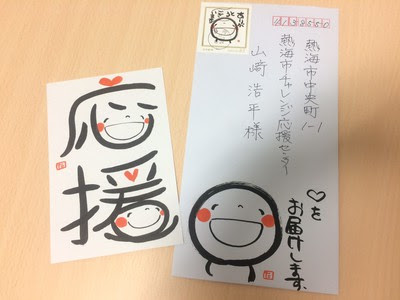 応
援
4138550
熱海市中央町1-1
熱海市チャレンジ応援センター
山崎浩平様
♡を
お届けします。